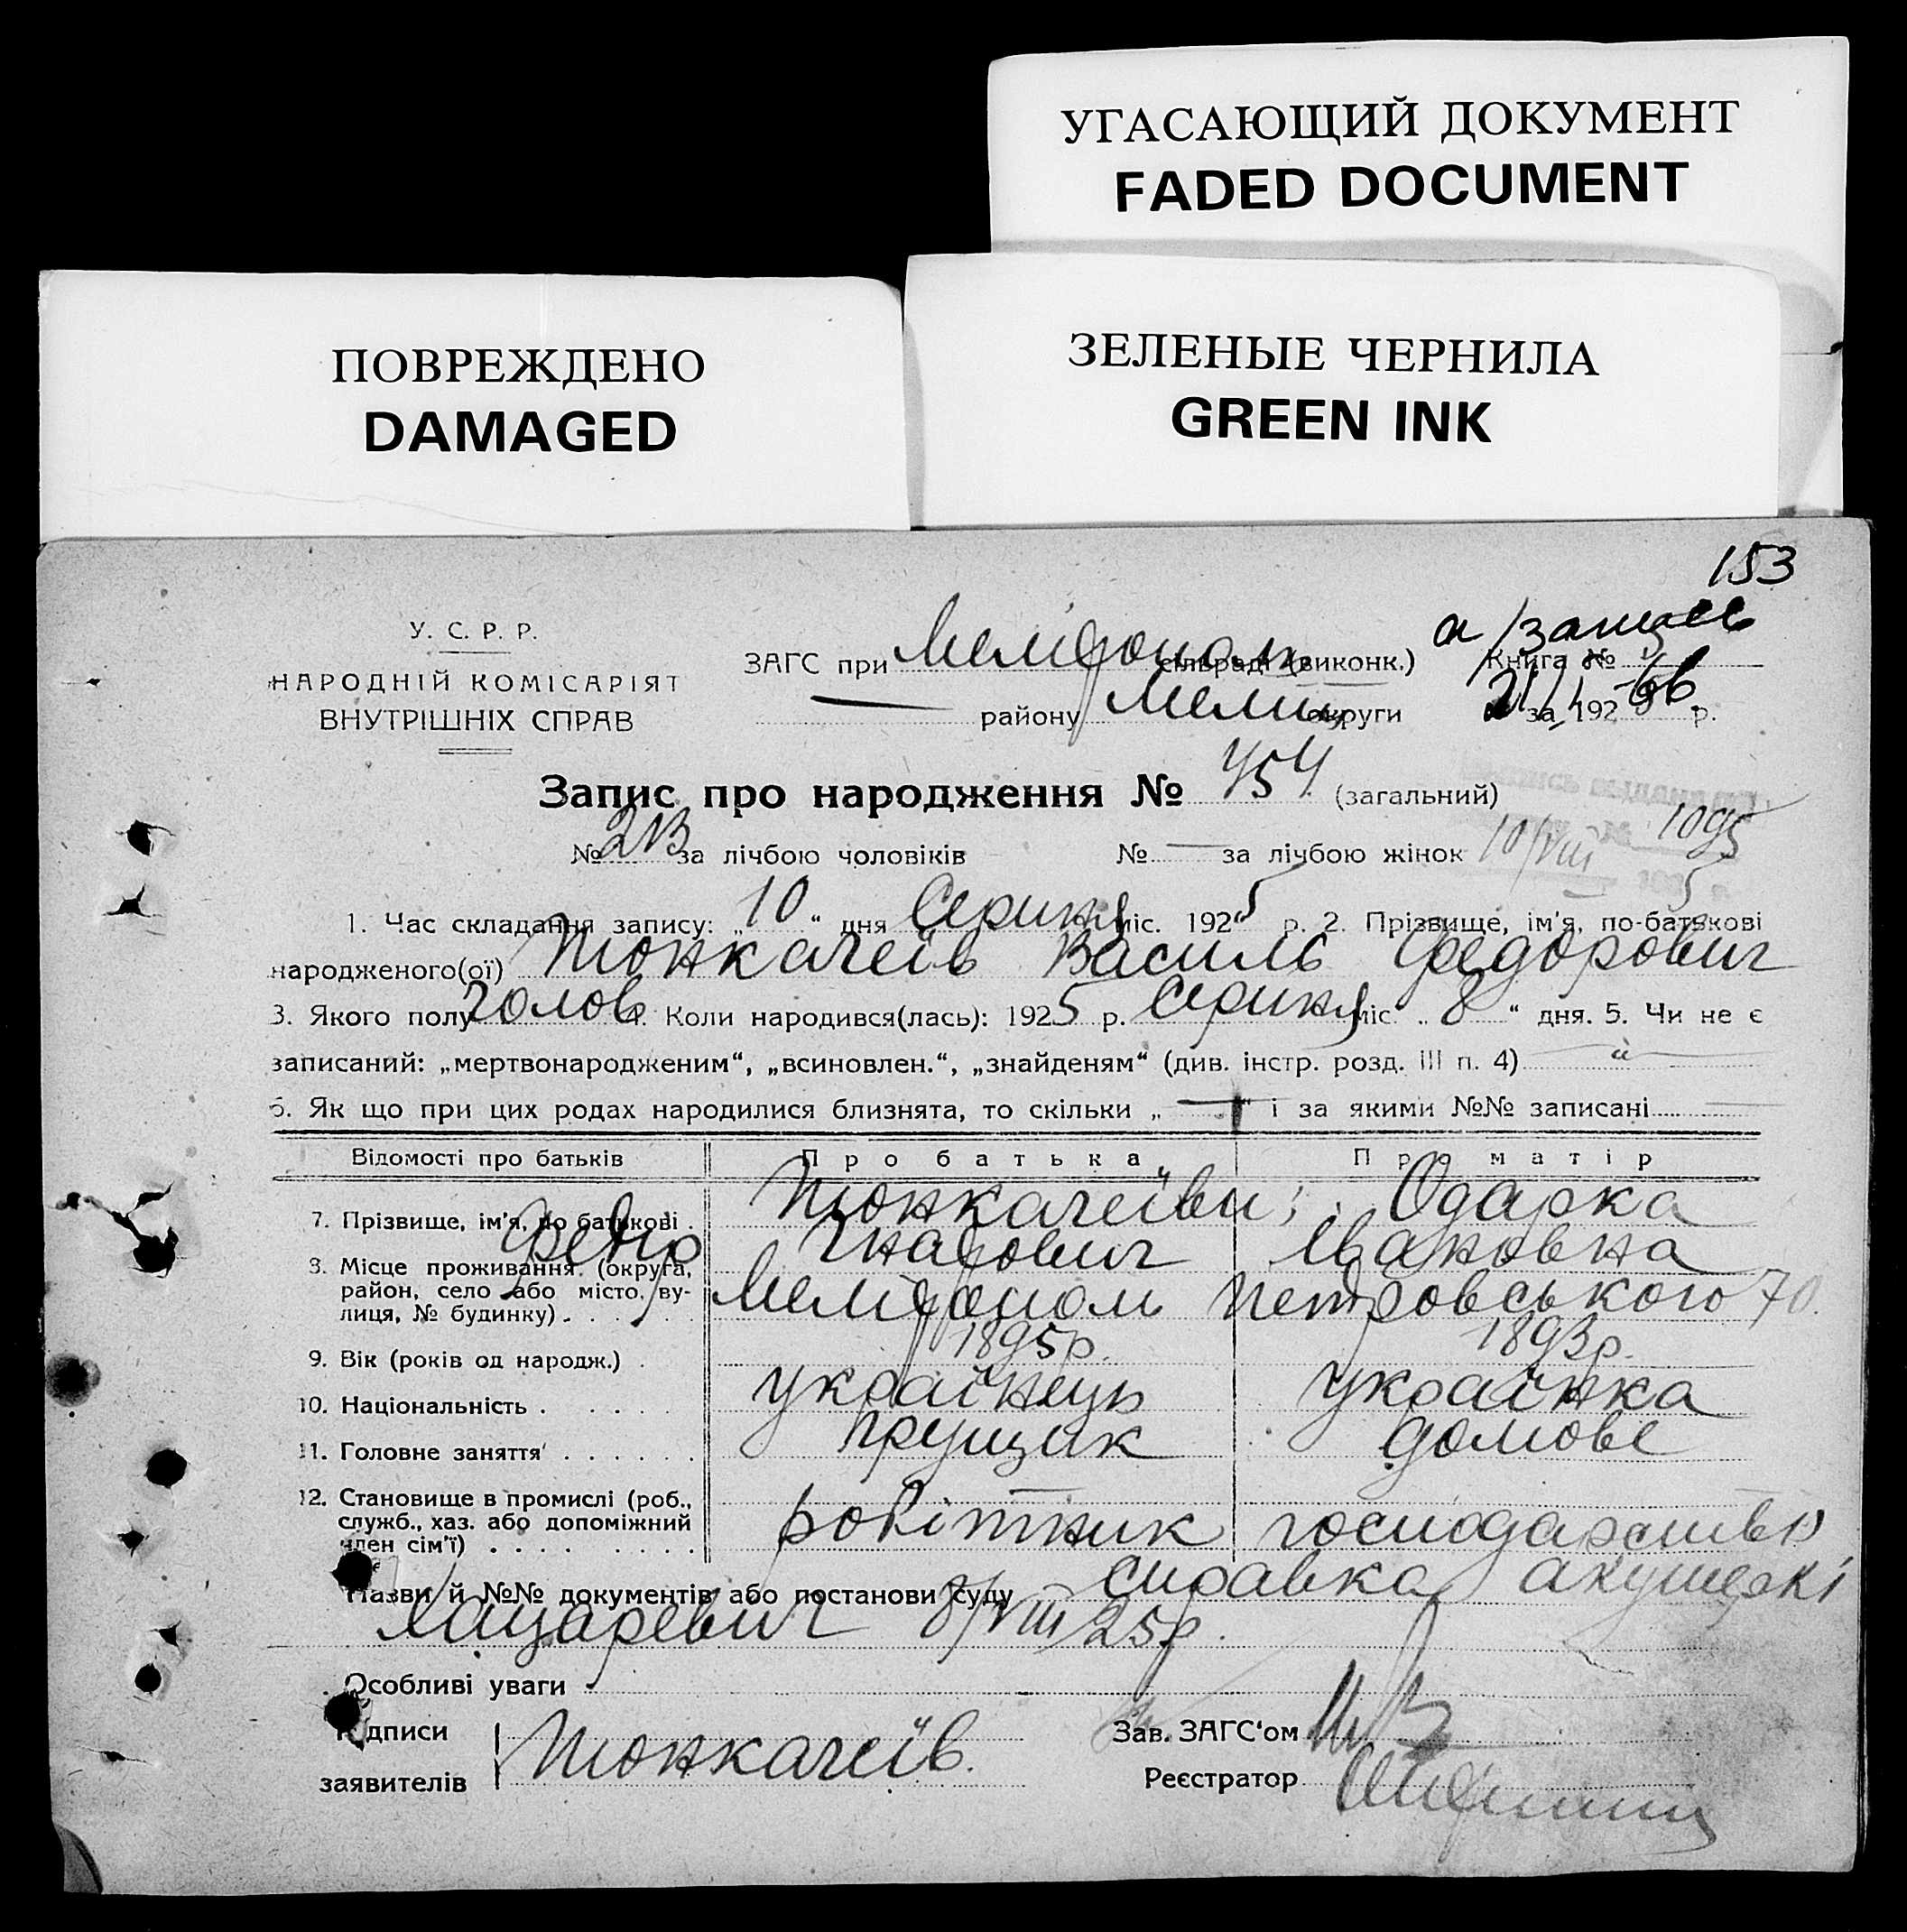 УГАСАЮЩИЙ ДОКУМЕНТ
FADED DOCUMENT
ПОВРЕЖДЕНО
DAMAGED
ЗЕЛЕНЫЕ ЧЕРНИЛА
GREEN INK
153
У. С. Р. Р.
НАРОДНІЙ КОМІСАРІЯТ
ВНУТРІШНІХ СПРАВ
ЗАГС при сільраді (виконк.) Книга №
— району Меліт округи за 192 р.
Запис про народження № 454 (загальний)
№ 213 за лічбою чоловіків № — за лічбою жінок 10/VIII 1095
1. Час складання запису: „10“ дня Серпня міс. 1925 р. 2. Прізвище, ім'я, по-батькові
народженого(ої) Тонкачеїв Василь Федорович
3. Якого полу чолов 4. Коли народився(лась): 1925 р. Серпня міс. „8“ дня. 5. Чи не є
записаний: „мертвонародженим“, „всиновлен.“, „знайденям“ (див. інстр. розд. III п. 4) "
6. Як що при цих родах народилися близнята, то скільки „—“ і за якими №№ записані —
Відомості про батьків Про батька Про матір
7. Прізвище, ім'я, по батькові Тонкачеїви; Одарка
Федір Гнатович Івановна
8. Місце проживання (округа,
район, село або місто, ву-
лиця, № будинку) Мелітополь Петровського 70.
9. Вік (років од народж.) 1895р. 1893р.
10. Національність українець українка
11. Головне заняття грущик домове
12. Становище в промислі (роб.,
служб., хаз. або допоміжний
член сім'ї) робітник господарство
Назви й №№ документів або постанови суду справка акушерки
Хацаревич 8/VIII 25р.
Особливі уваги
Підписи
заявителів Тонкачеїв.
Зав. ЗАГС'ом
Реєстратор